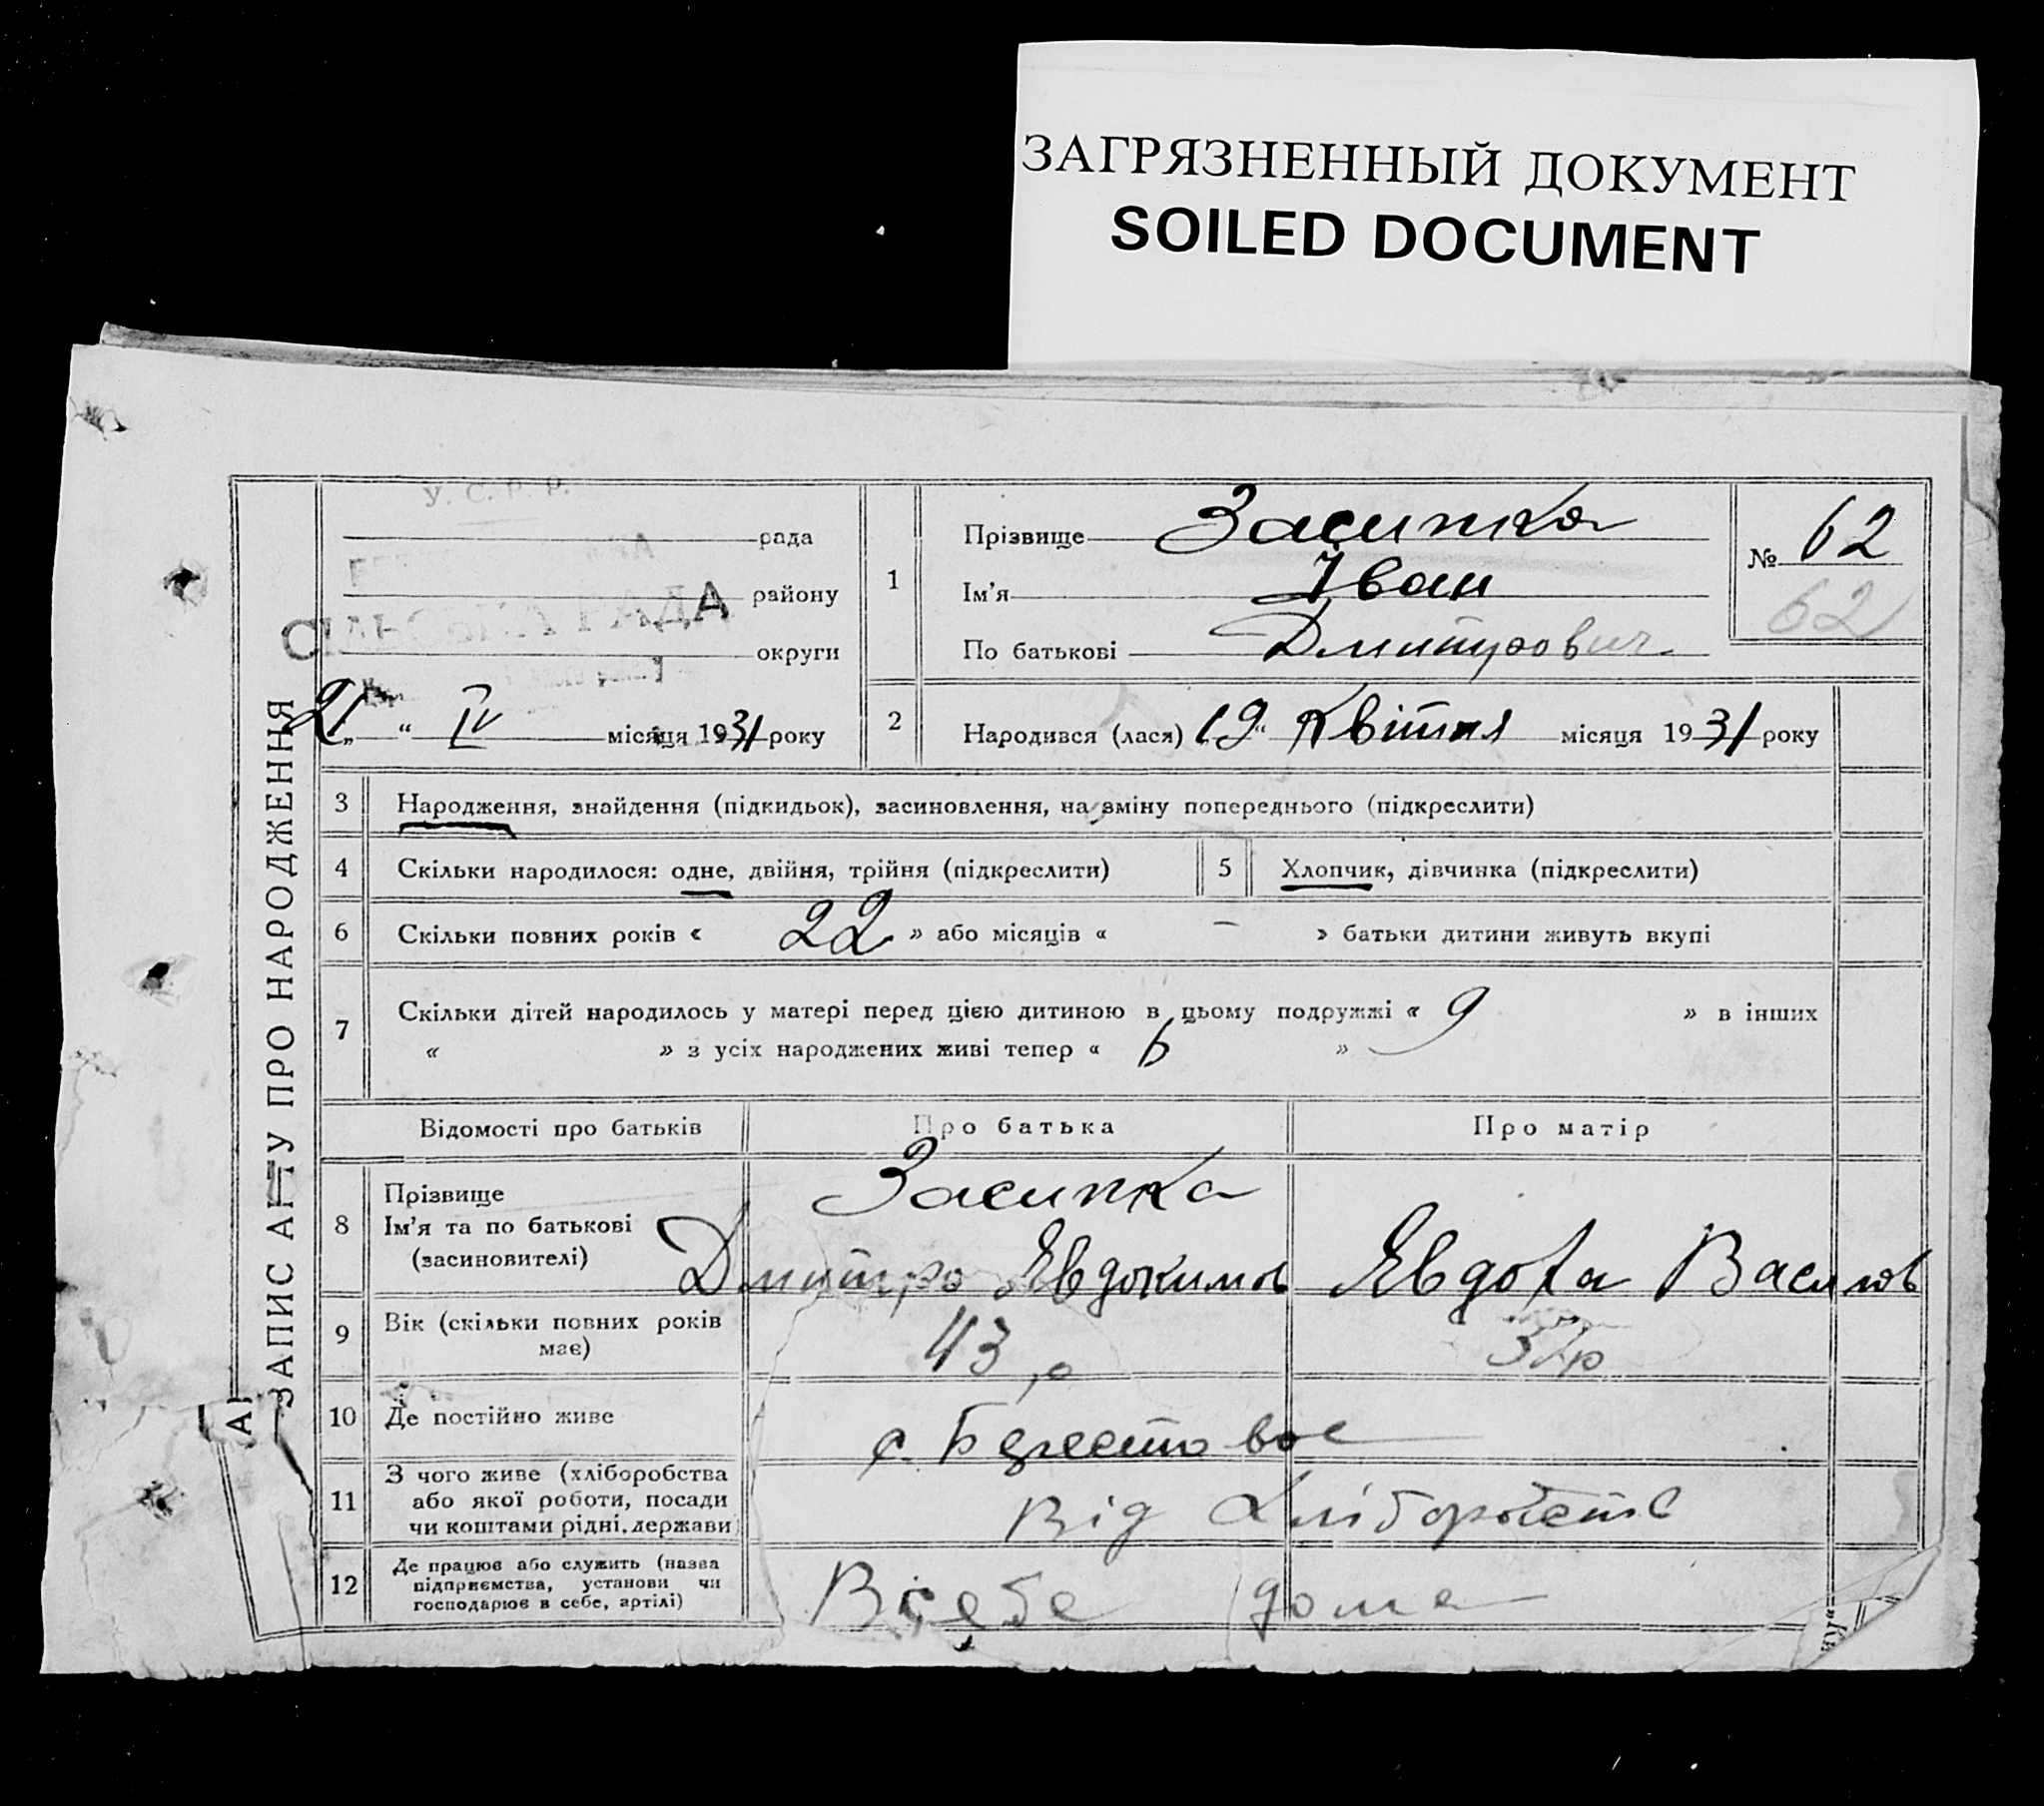 ЗАГРЯЗНЕННЫЙ ДОКУМЕНТ
SOILED DOCUMENT
ЗАПИС АКТУ ПРО НАРОДЖЕННЯ
У. С. Р. Р.
рада
району
РАДА
округи
21 „ “ IV місяця 1931 року
1
Прізвище Засипка
Ім'я Іван
По батькові Дмитрович
№ 62
62
2 Народився (лася) „19“ Квітня місяця 1931 року
3 Народження, знайдення (підкидьок), засиновлення, на зміну попереднього (підкреслити)
4 Скільки народилося: одне, двійня, трійня (підкреслити)
5 Хлопчик, дівчинка (підкреслити)
6 Скільки повних років « 22 » або місяців « – » батьки дитини живуть вкупі
7 Скільки дітей народилось у матері перед цією дитиною в цьому подружжі « 9 » в інших
« » з усіх народжених живі тепер « 6 »
Відомості про батьків Про батька Про матір
8 Прізвище
Ім'я та по батькові
(засиновителі)
Засипка
Дмитро Евдокимов Евдоха Васылів
9 Вік (скільки повних років
має)
43 р
р
10 Де постійно живе с. Берестовое
11 З чого живе (хліборобства
або якої роботи, посади
чи коштами рідні, держави
Від Хліборобств
12 Де працює або служить (назва
підприємства, установи чи
господарює в себе, артілі)
В себе дома